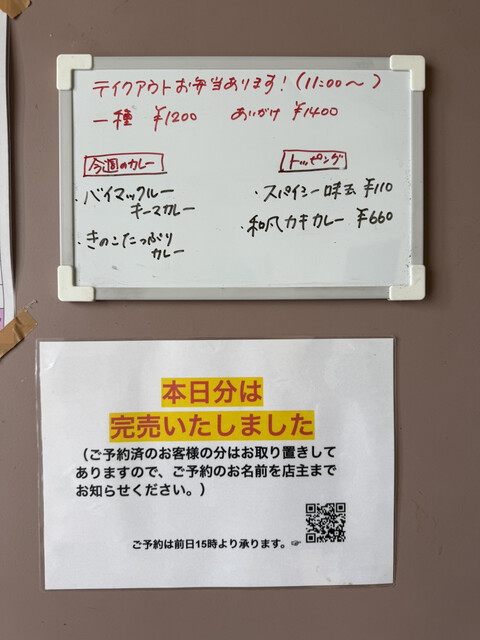 テイクアウトお弁当あります!(11:00〜)
一種 ¥1200 あいがけ ¥1400
今週のカレー
・バイマックルー
キーマカレー
・きのこたっぷり
カレー
トッピング
・スパイシー味玉 ¥110
・和風カキカレー ¥660
本日分は
完売いたしました
(ご予約済のお客様の分はお取り置きして
ありますので、ご予約のお名前を店主まで
お知らせください。)
ご予約は前日15時より承ります。☞